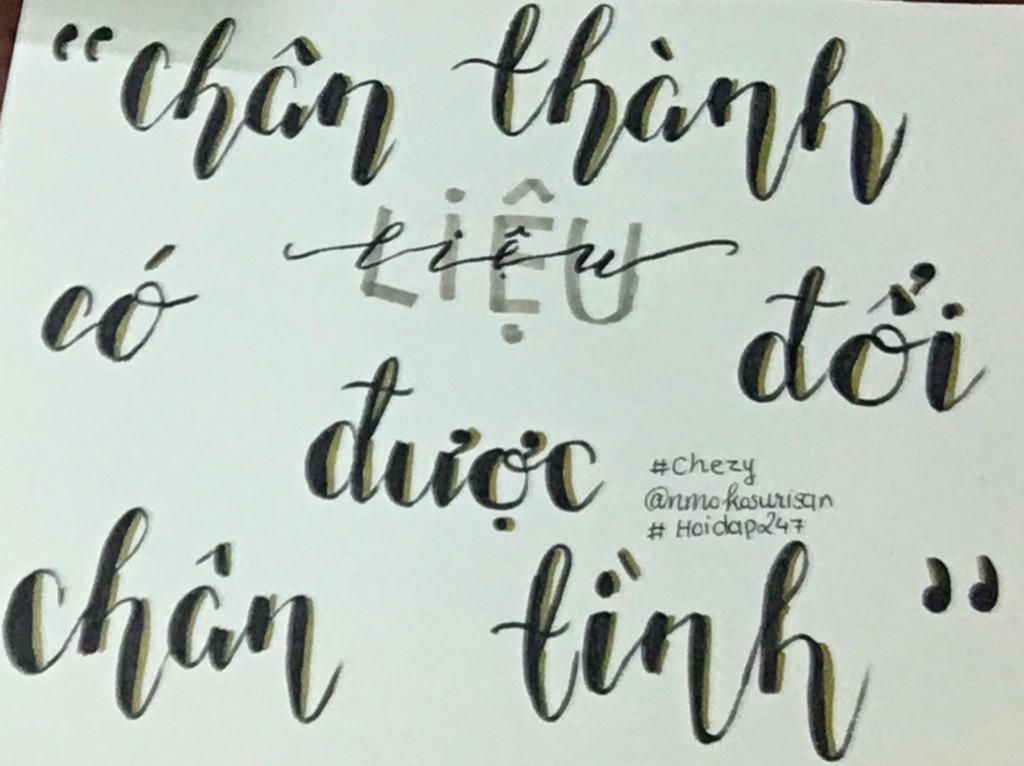 “chân thành
LIỆU
có liệu đổi
được
#Chezy
@nmokasurisan
#Hoidap247
chân tình”